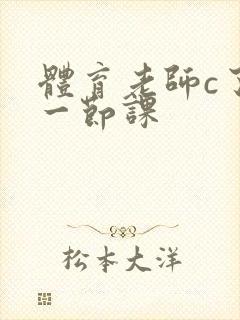 體育老師c了
一節課
松本大洋